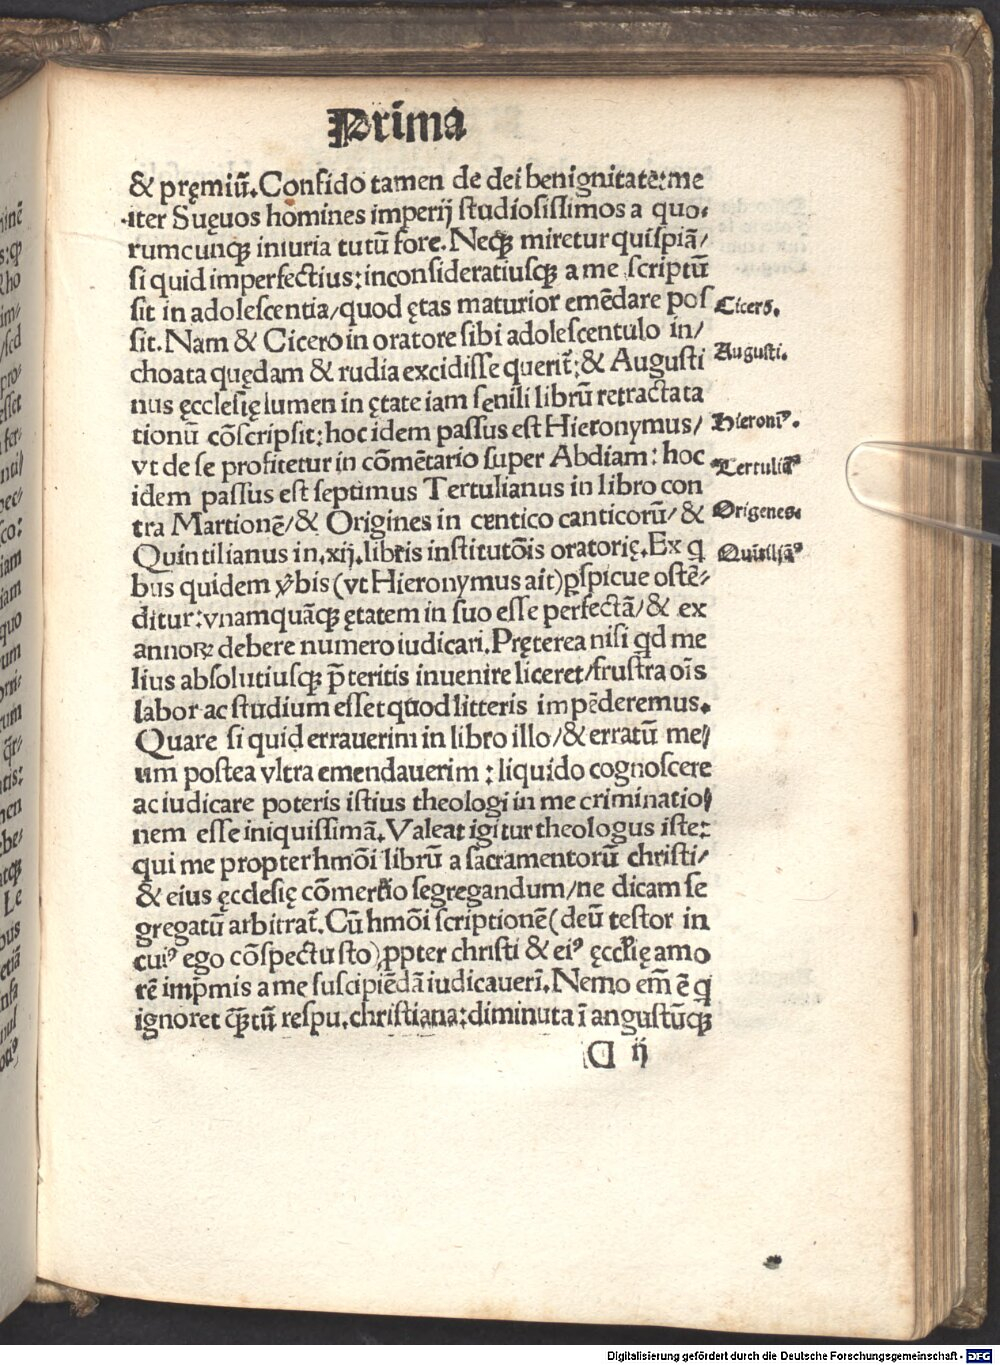 Prima
& pręmiū. Confido tamen de dei benignitate: me
iter Suęuos homines imperij ſtudioſiſſimos a quo-
rumcunqꝫ iniuria tutū fore. Neqꝫ miretur quiſpiā/
ſi quid imperfectius: inconſideratiuſqꝫ a me ſcriptū
ſit in adoleſcentia/quod ętas maturior emēdare poſ
Cicero.
ſit. Nam & Cicero in oratore ſibi adoleſcentulo in/
choata quędam & rudia excidiſſe querit̃: & Auguſti
Auguſti.
nus ęccleſię lumen in ętate iam ſenili librū retractata
tionū cōſcripſit: hoc idem paſſus eſt Hieronymus/
Hieronꝰ.
vt de ſe profitetur in cōmētario ſuper Abdiam: hoc
Tertuliāꝰ
idem paſſus eſt ſeptimus Tertulianus in libro con
tra Martionē/& Origines in centico canticorū/&
Origenes.
Quintilianus in.xij.libris inſtitutōis oratorię. Ex q
Quītiliāꝰ
bus quidem ꝟbis (vt Hieronymus ait) ꝑſpicue oſtē-
ditur: vnamquāqꝫ ętatem in ſuo eſſe perfectā/& ex
annoꝝ debere numero iudicari. Pręterea niſi qd me
lius abſolutiuſqꝫ p̄teritis inuenire liceret/fruſtra oīs
labor ac ſtudium eſſet quod litteris impēderemus.
Quare ſi quid errauerim in libro illo/& erratū me/
um poſtea vltra emendauerim: liquido cognoſcere
ac iudicare poteris iſtius theologi in me criminatio/
nem eſſe iniquiſſimā. Valeat igitur theologus iſte:
qui me propter hmōi librū a ſacramentorū chriſti/
& eius ęccleſię cōmertio ſegregandum/ne dicam ſe
gregatū arbitrat̃. Cū hmōi ſcriptionē (deū teſtor in
cuiꝰ ego cōſpectu ſto) ꝓpter chriſti & eiꝰ ęccłię amo
rē imp̄mis a me ſuſcipiēdā iudicauerī. Nemo em̄ ē q
ignoret q̄tū reſpu. chriſtiana: diminuta ī anguſtūqꝫ
D ij
Digitalisierung gefördert durch die Deutsche Forschungsgemeinschaft - DFG